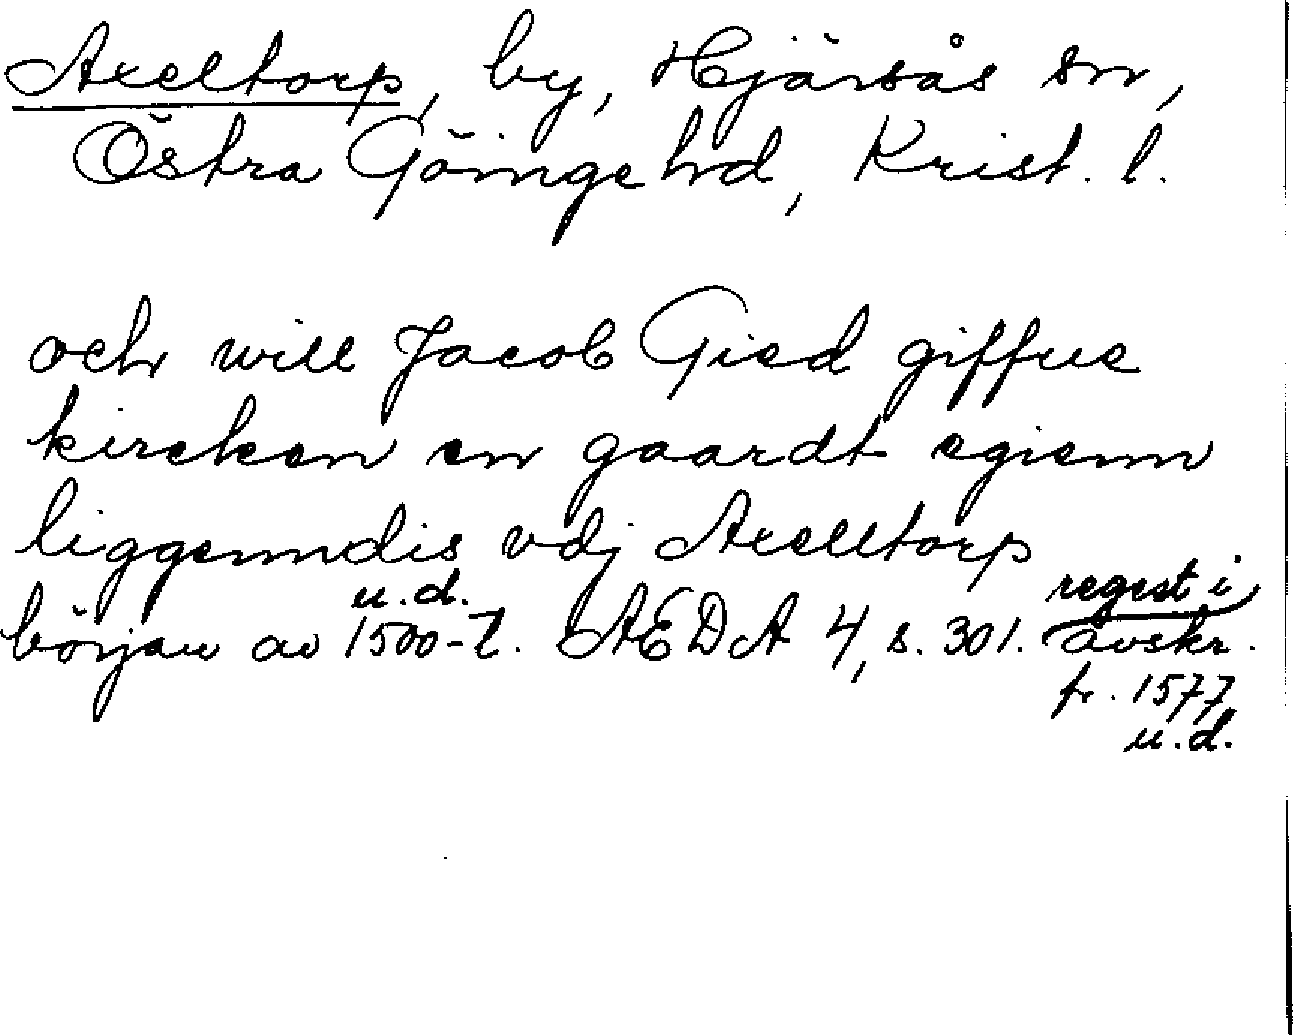 Axeltorp, by, Hjärsås sn,
Östra Göinge hd, Krist. l.
och will Jacob Gied giffue
kircken en gaardt egienn
liggenndis vdj Axelltorp
u.d. regest i
början av 1500-t. ÆDA 4, s. 301. avskr.
fr. 1577
u.d.